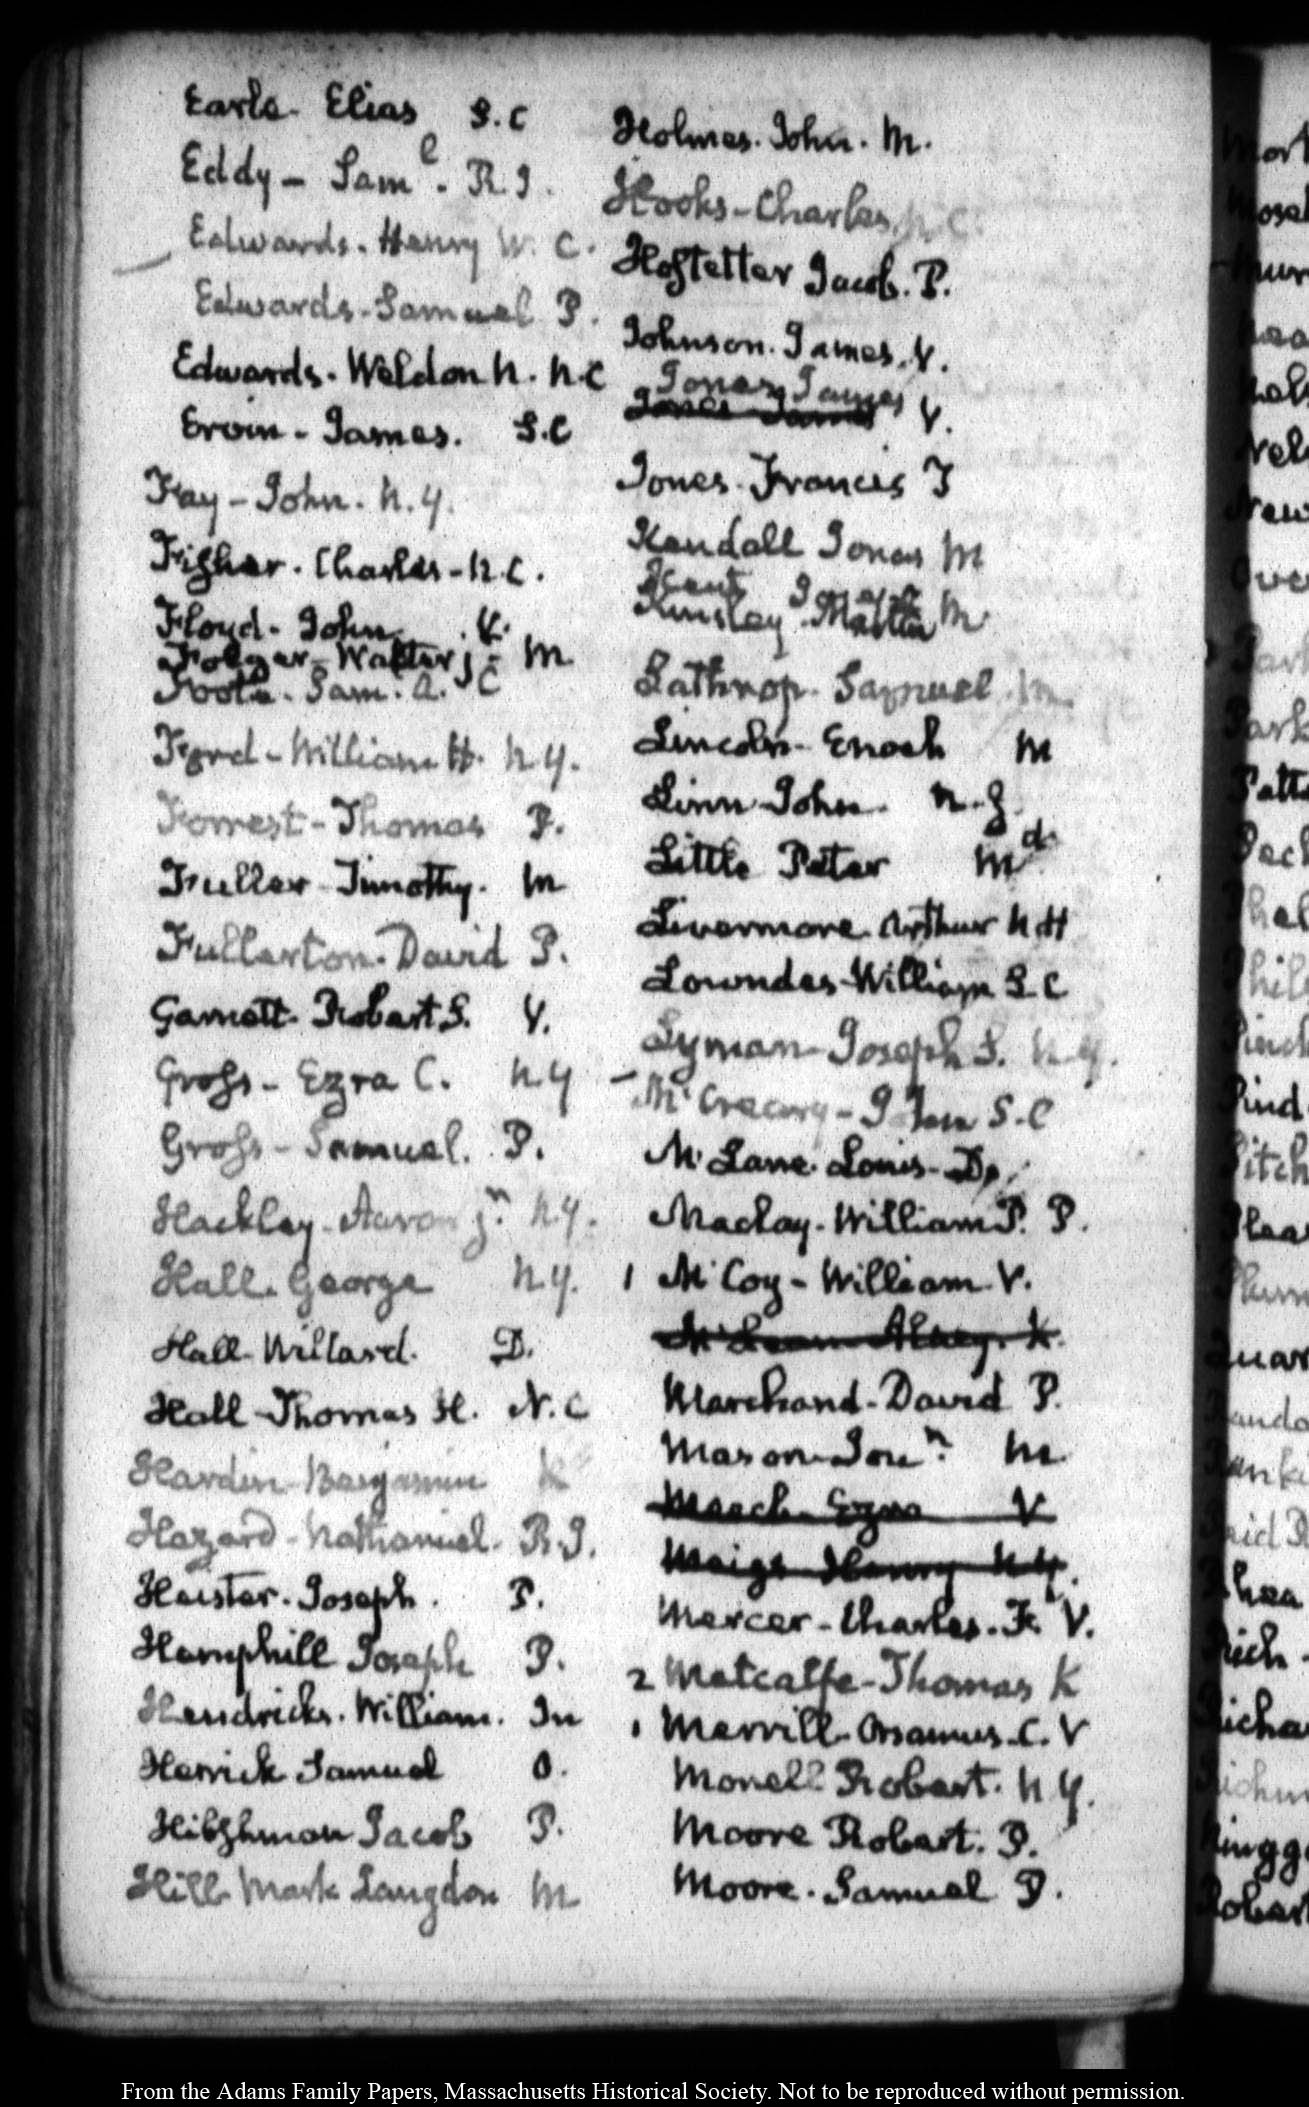 Earle - Elias S. C
Eddy - Saml. R. I.
Edwards. Henry W. C.
Edwards. Samuel P.
Edwards. Weldon N. N. C
Ervin - James. S. C
Fay - John. N. Y.
Fisher. Charles - N. C.
Floyd - John V.
Folger - Walter j: M.
Foote - Sam. A. C
Ford - William H. N. Y.
Forrest - Thomas P.
Fuller Timothy. M
Fullerton. David P.
Garnett Robert S. V.
Gross - Ezra C. N. Y
Gross - Samuel. P.
Hackley. Aaron jr. N. Y.
Hall. George N. Y.
Hall. Willard. D.
Hall - Thomas H. N. C
Hardin Benjamin K
Hazard - Nathaniel. R. I.
Heister. Joseph. P.
Hemphill Joseph P.
Hendricks. William. In
Herrick Samuel O.
Hibshman Jacob P.
Hill Mark Langdon M
Holmes. John. M.
Hooks - Charles. N. C.
Hostetter Jacob. P.
Johnson. James. V.
Jones James
Jones James V.
Jones. Francis T
Kendall Jonas M
Kent Joseph
Kinsley. Martin M.
Lathrop. Samuel M
Lincoln - Enoch M
Linn John. N. J.
Little Peter Md.
Livermore. Arthur N H
Lowndes - William S. C
Lyman - Joseph S. N. Y.
- McCreary - John S. C
McLane. Louis - D.
Maclay. William P. P.
1 McCoy - William V.
McLean Alney. K.
Marchand - David P.
Mason Jonn. M.
Meech Ezra V
Meigs Henry N Y.
Mercer - Charles. F. V.
2 Metcalfe - Thomas K
1 Merrill. Orsamus. C. V
Monell Robert. N. Y.
Moore Robert. P.
Moore. Samuel P.
From the Adams Family Papers, Massachusetts Historical Society. Not to be reproduced without permission.